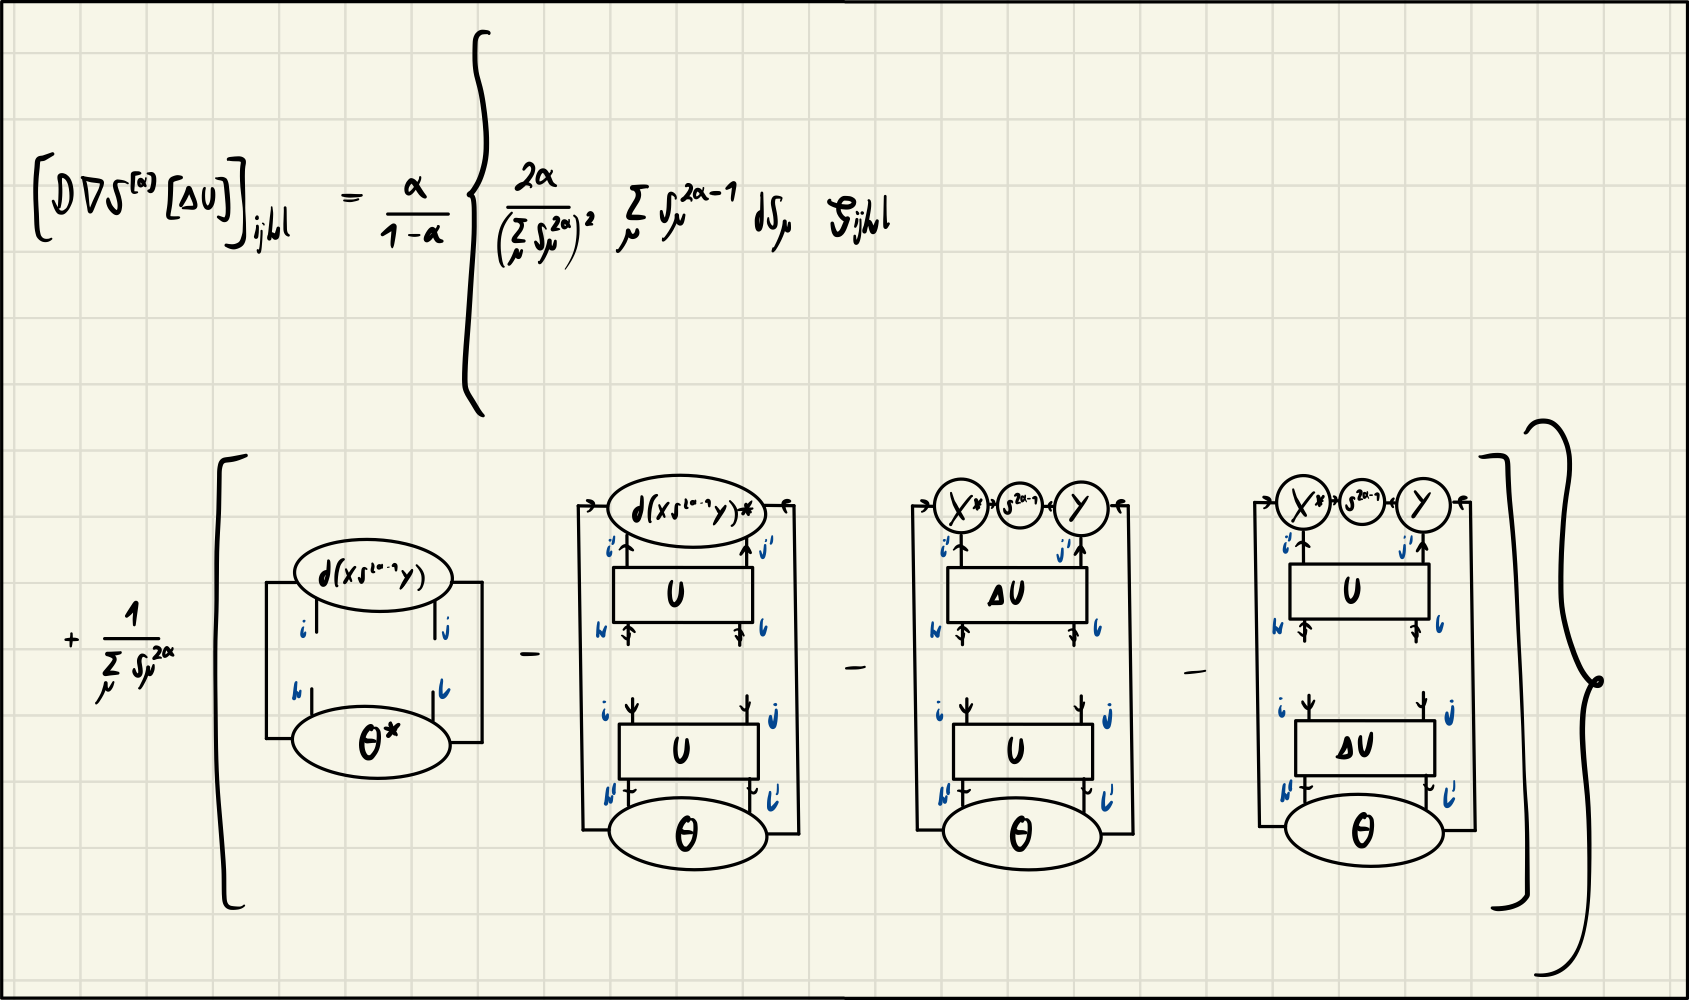 [D∇S^{[α]}[ΔU]]_{ijkl} = \frac{α}{1-α} { \frac{2α}{(Σ_μ S_μ^{2α})^2} Σ_μ S_μ^{2α-1} dS_μ 𝒢_{ijkl}
+ \frac{1}{Σ_μ S_μ^{2α}} [ d(XS^{2α-1}Y) i j k l θ* - d(XS^{2α-1}Y)* i' j' U k l i j U k' l' θ - X* S^{2α-1} Y i' j' ΔU k l i j U k' l' θ - X* S^{2α-1} Y i' j' U k l i j ΔU k' l' θ ] }